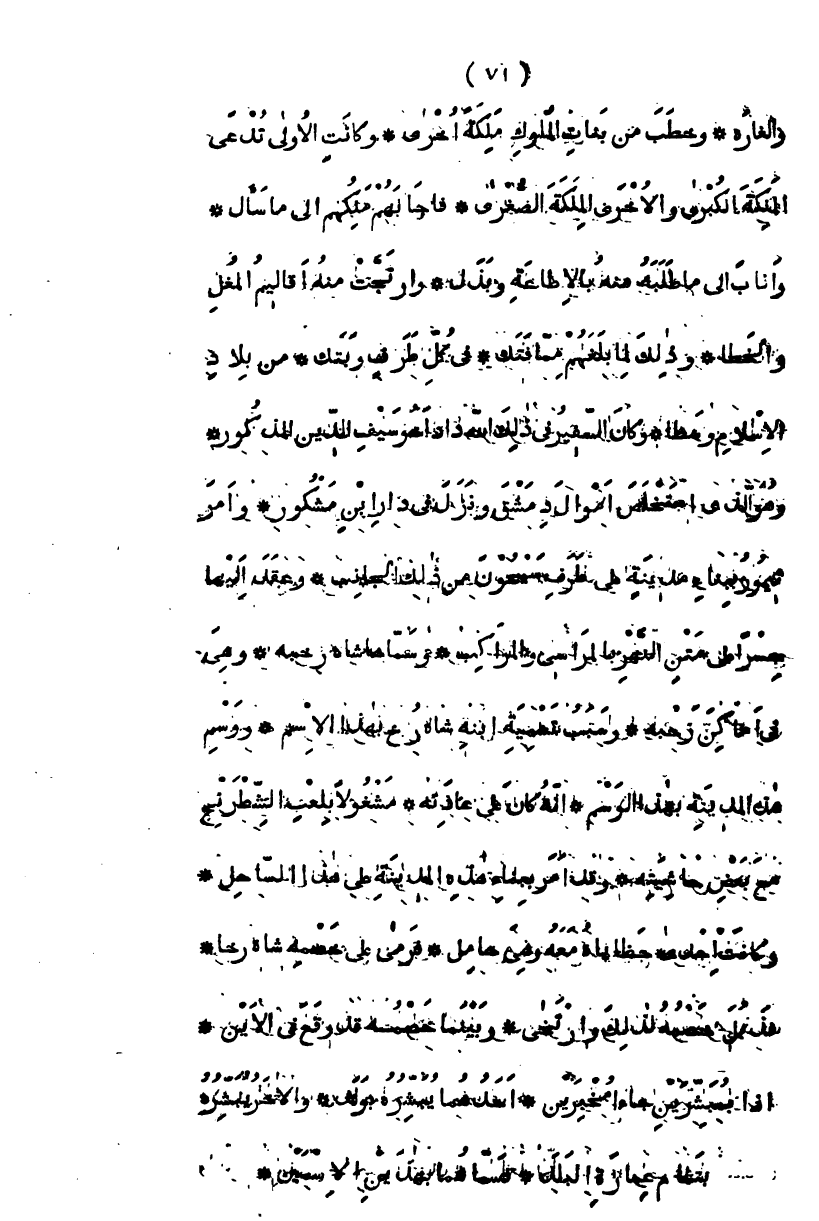 ( ٧١ )
والغاره * وخطَبَ من بَناتِ المُلوكِ مَلِكَةً أُخْرٰى * وكانَتِ الاُولٰى تُدْعَى
المَلِكَةَ الكُبْرٰى والاُخْرَى المَلِكَةَ الصُّغْرٰى * فاجَابَهُمْ مَلِكُهم الى ما سَأَل *
وَأنابَ الى ما طَلَبَهُ منهُ بالاِطاعَةِ وبَذَل * وارتَجَّتْ منهُ أَقاليمُ المُغلِ
والخَطا * وذٰلِكَ لمّا بَلَغَهُمْ مِمّا فَتَك * فى كُلِّ طَرَفٍ وبَتَك * من بِلادِ
الاِسْلامِ وسَطا * وكانَ السَّفيرُ فى ذٰلِكَ اللّٰه داد أخُو سَيْفِ الدِّينِ المذكُور *
وهُوَ الَّذى اسْتَخْلَصَ أَمْوالَ دِمَشْقَ ونَزَلَ فى دارِ ابْنِ مَشْكُور * وأَمَرَ
تيمُورُ ببِناءِ مَدينَةٍ على طَرَفِ سَيْحُونَ من ذٰلِكَ الجانِب * وعَقَدَ إلَيْها
جِسْرًا على مَتْنِ النَّهْرِ بالمَرَاسى والمَرَاكِب * وسَمّاها شاه رخيه * وهى
فى أماكِنَ رَحْبه * وسَبَبُ تَسْمِيَةِ ابْنِهِ شاه رُخ بهٰذا الاِسْم * ووَسْمِ
هٰذه المَدينَةِ بهٰذا الوَسْم * انّهُ كانَ على عادَتِه * مَشْغُولاً بلَعْبِ الشِّطْرَنْجِ
مع بَعْضِ حاشِيَتِه * وقد أَمَرَ ببِناءِ هٰذه المدينَةِ على هٰذا السّاحِل *
وكانَتْ إحْدٰى حَظاياهُ مَعَهُ وهى حامِل * فرَمٰى على خَصْمِه شاه رخا *
خَصْمُهُ لذٰلِكَ وارْتَخٰى * وبَيْنَما خَصْمُه قد وقَعَ فى الأَيْن *
اذا بمُبَشِّرَيْنِ جاءا مُخْبِرَيْن * أَحَدُهُما يُبَشِّرُهُ بوَلَد * والآخَرُ يُبَشِّرُه
بتَمامِ عِمارَةِ البَلَد * فسَمّاهُما بهٰذَيْنِ الاِسْمَيْن *